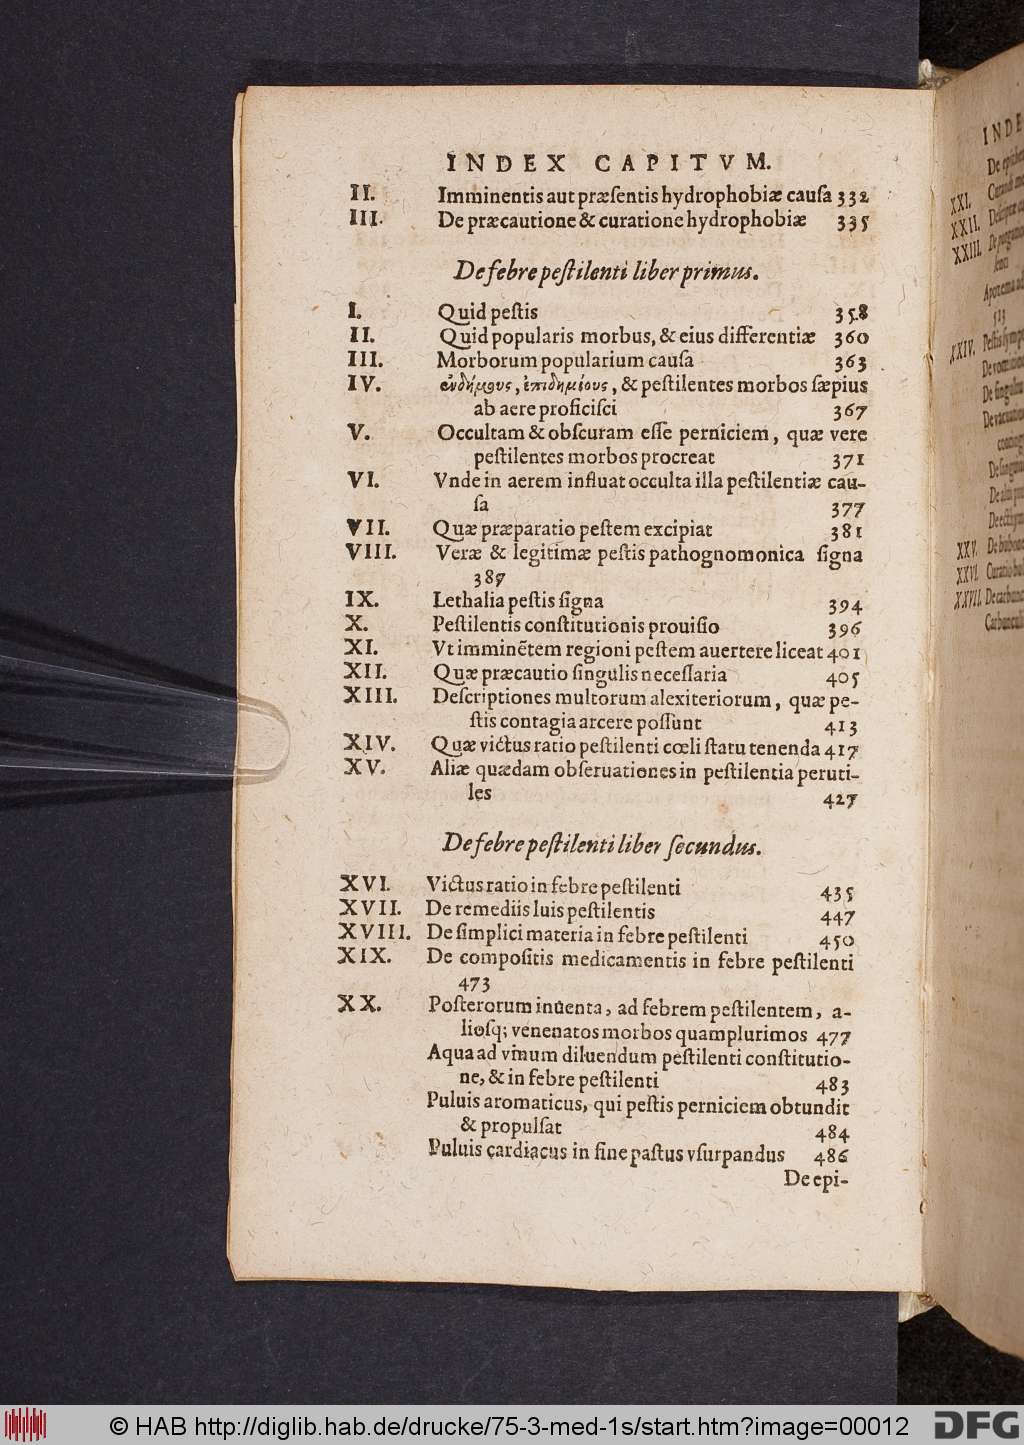 INDEX CAPITVM.
II. Imminentis aut præſentis hydrophobiæ cauſa 332
III. De præcautione & curatione hydrophobiæ 335
De febre peſtilenti liber primus.
I. Quid peſtis 358
II. Quid popularis morbus, & eius differentiæ 360
III. Morborum popularium cauſa 363
IV. ἐνδήμους, ἐπιδημίους, & peſtilentes morbos ſæpius
ab aere proficiſci 367
V. Occultam & obſcuram eſſe perniciem, quæ vere
peſtilentes morbos procreat 371
VI. Vnde in aerem influat occulta illa peſtilentiæ cau-
ſa 377
VII. Quæ præparatio peſtem excipiat 381
VIII. Veræ & legitimæ peſtis pathognomonica ſigna
387
IX. Lethalia peſtis ſigna 394
X. Peſtilentis conſtitutionis prouiſio 396
XI. Vt imminẽtem regioni peſtem auertere liceat 401
XII. Quæ præcautio ſingulis neceſſaria 405
XIII. Deſcriptiones multorum alexiteriorum, quæ pe-
ſtis contagia arcere poſſunt 413
XIV. Quæ victus ratio peſtilenti cœli ſtatu tenenda 417
XV. Aliæ quædam obſeruationes in peſtilentia peruti-
les 427
De febre peſtilenti liber ſecundus.
XVI. Victus ratio in febre peſtilenti 435
XVII. De remediis luis peſtilentis 447
XVIII. De ſimplici materia in febre peſtilenti 450
XIX. De compoſitis medicamentis in febre peſtilenti
473
XX. Poſterorum inuenta, ad febrem peſtilentem, a-
lioſq; venenatos morbos quamplurimos 477
Aqua ad vinum diluendum peſtilenti conſtitutio-
ne, & in febre peſtilenti 483
Puluis aromaticus, qui peſtis perniciem obtundit
& propulſat 484
Puluis cardiacus in fine paſtus vſurpandus 486
De epi-
INDE
XXI.
XXII.
XXIII.
513
XXIV.
XXV.
XXVI.
XXVII.
© HAB http://diglib.hab.de/drucke/75-3-med-1s/start.htm?image=00012
DFG